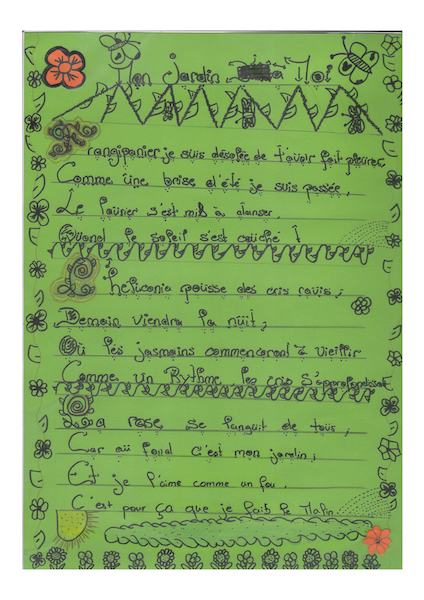 Mon Jardin à Moi
Frangipanier je suis désolée de t'avoir fait pleurer
Comme une brise d'été je suis passée,
Le laurier s'est mis à danser,
Quand le soleil s'est couché !
L'heliconia pousse des cris ravis ;
Demain viendra la nuit,
Où les jasmains commenceront à vieillir
Comme un Rythme les cris s'approfondissent
La rose se languit de tous,
Car au fond c'est mon jardin ;
Et je l'aime comme un fou,
C'est pour ça que je fais le